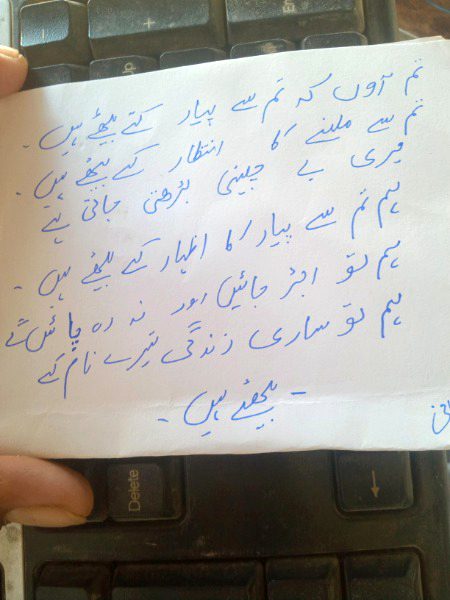 تم آؤں کہ تم سے پیار کئے بیٹھے ہیں۔
تم سے ملنے کا انتظار کئے بیٹھے ہیں۔
میری بے چینی بڑھتی جاتی ہے
ہم تم سے پیار کا اظہار کئے بیٹھے ہیں۔
ہم تو اجڑ جائیں اور نہ رہ پائیں گے
ہم تو ساری زندگی تیرے نام کے
- بیٹھے ہیں۔
Delete